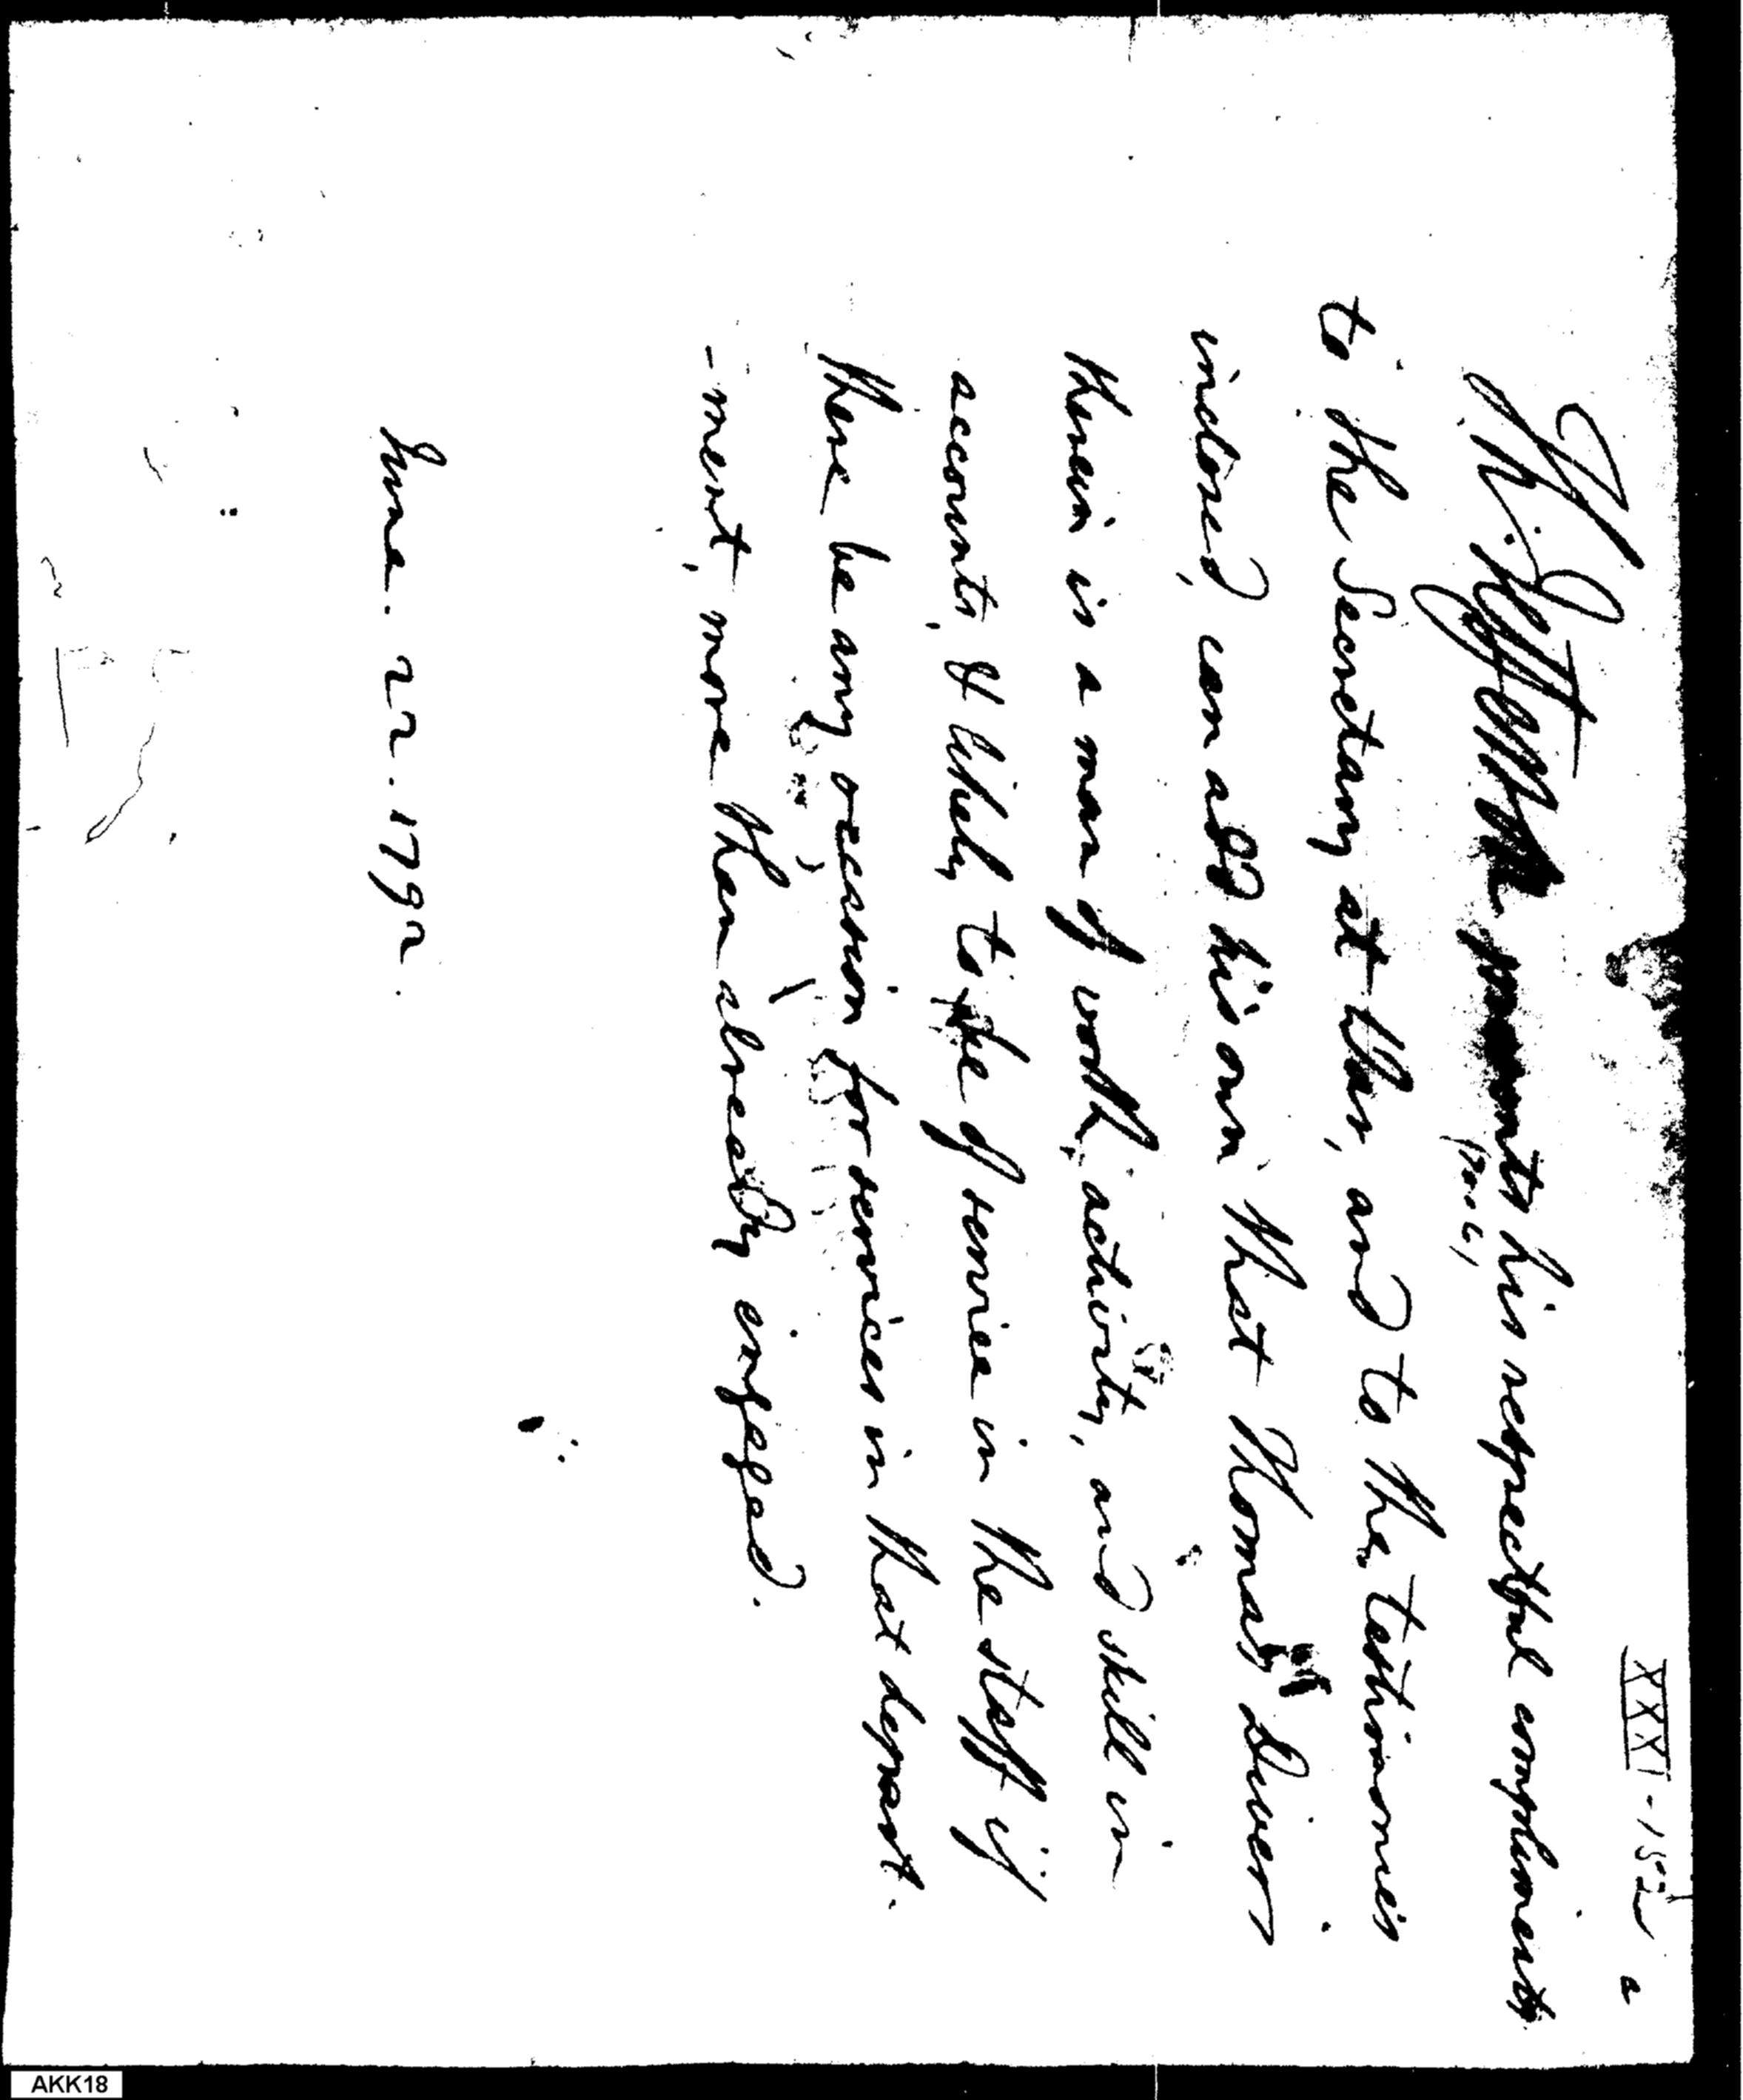 XXXI - 152 a
Th. Jefferson presents his respectful compliments
to the Secretary at War, and to the testimonies
inclosed, can add his own that Thomas
therein is a man of worth, activity, and skill in
accounts, & likely to be of service in the staff if
there be any occasion for services in that depart-
-ment, more than already engaged.
June. 22. 1792.
AKK18